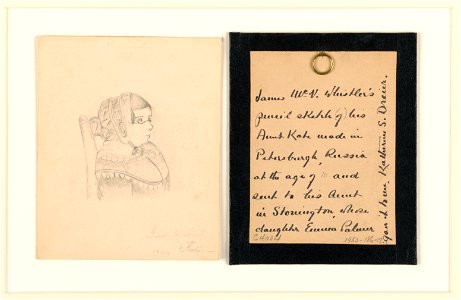 James McN. Whistler's
pencil sketch of his
Aunt Kate made in
Petersburgh, Russia
at the age of 10 and
sent to his Aunt
in Stonington, whose
daughter Emma Palmer
gave it to me, Katherine S. Dreier.